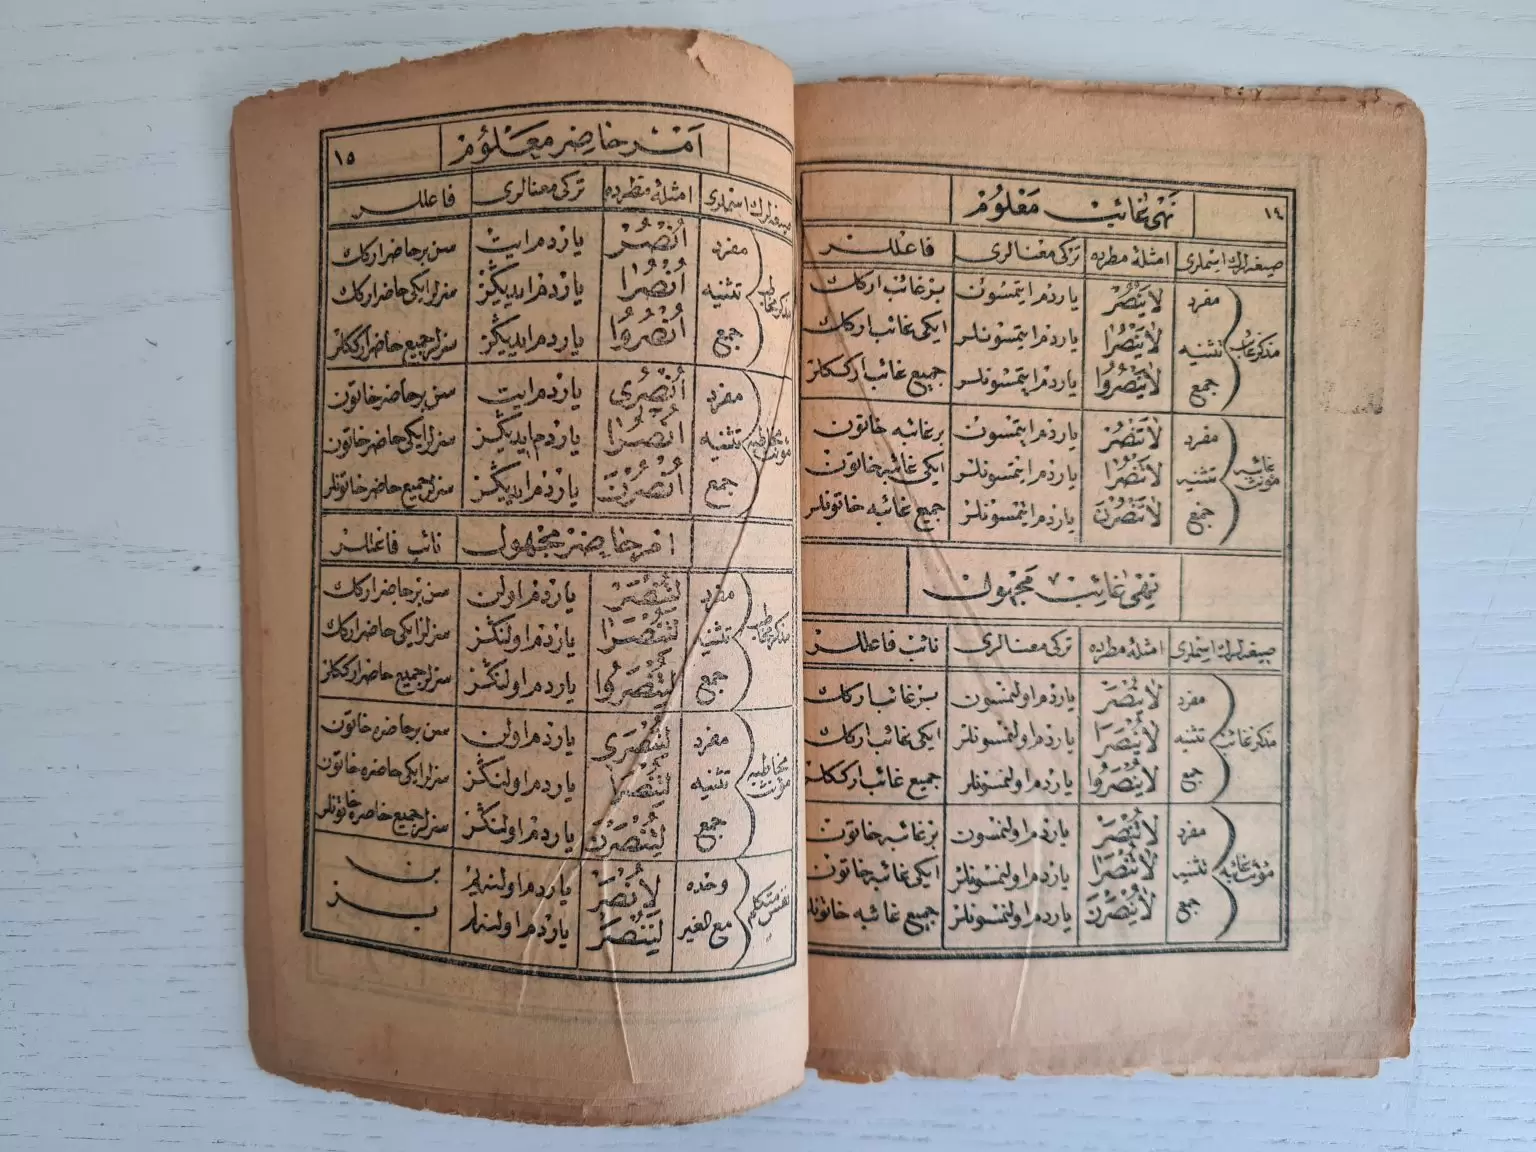 ١٤
نهی غائب معلوم
صیغه‌لرك اسملری امثلهٔ مطرده ترکی معنالری فاعللر
مذکر غائب
مفرد لَا يَنْصُرْ یاردم ایتمسون بر غائب ارکك
تثنیه لَا يَنْصُرَا یاردم ایتمسونلر ایکی غائب ارکك
جمع لَا يَنْصُرُوا یاردم ایتمسونلر جمیع غائب ارککلر
مؤنث غائبه
مفرد لَا تَنْصُرْ یاردم ایتمسون بر غائبه خاتون
تثنیه لَا تَنْصُرَا یاردم ایتمسونلر ایکی غائبه خاتون
جمع لَا يَنْصُرْنَ یاردم ایتمسونلر جمیع غائبه خاتونلر
نهی غائب مجهول
صیغه‌لرك اسملری امثلهٔ مطرده ترکی معنالری نائب فاعللر
مذکر غائب
مفرد لَا يُنْصَرْ یاردم اولنمسون بر غائب ارکك
تثنیه لَا يُنْصَرَا یاردم اولنمسونلر ایکی غائب ارکك
جمع لَا يُنْصَرُوا یاردم اولنمسونلر جمیع غائب ارککلر
مؤنث غائبه
مفرد لَا تُنْصَرْ یاردم اولنمسون بر غائبه خاتون
تثنیه لَا تُنْصَرَا یاردم اولنمسونلر ایکی غائبه خاتون
جمع لَا يُنْصَرْنَ یاردم اولنمسونلر جمیع غائبه خاتونلر
امر حاضر معلوم ١٥
صیغه‌لرك اسملری امثلهٔ مطرده ترکی معنالری فاعللر
مذکر مخاطب
مفرد اُنْصُرْ یاردم ایت سن بر حاضر ارکك
تثنیه اُنْصُرَا یاردم ایدیڭز سزلر ایکی حاضر ارکك
جمع اُنْصُرُوا یاردم ایدیڭز سزلر جمیع حاضر ارککلر
مؤنث مخاطبه
مفرد اُنْصُرِى یاردم ایت سن بر حاضر خاتون
تثنیه اُنْصُرَا یاردم ایدیڭز سزلر ایکی حاضر خاتون
جمع اُنْصُرْنَ یاردم ایدیڭز سزلر جمیع حاضر خاتونلر
امر حاضر مجهول نائب فاعللر
مذکر مخاطب
مفرد لِتُنْصَرْ یاردم اولن سن بر حاضر ارکك
تثنیه لِتُنْصَرَا یاردم اولنڭز سزلر ایکی حاضر ارکك
جمع لِتُنْصَرُوا یاردم اولنڭز سزلر جمیع حاضر ارککلر
مؤنث مخاطبه
مفرد لِتُنْصَرِى یاردم اولن سن بر حاضره خاتون
تثنیه لِتُنْصَرَا یاردم اولنڭز سزلر ایکی حاضره خاتون
جمع لِتُنْصَرْنَ یاردم اولنڭز سزلر جمیع حاضره خاتونلر
نفس متکلم
وحده لِاُنْصَرْ یاردم اولنه‌یم بن
مع الغیر لِنُنْصَرْ یاردم اولنه‌لم بز